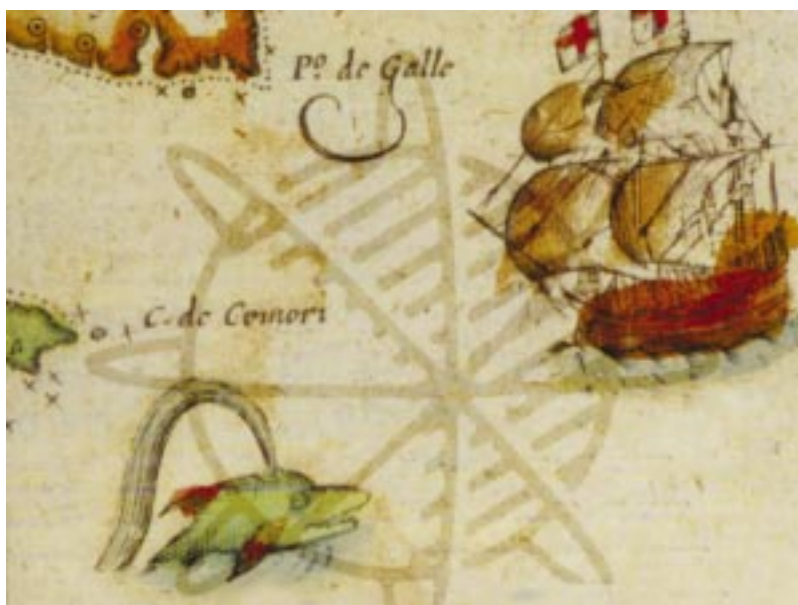 Pº de Galle
C. de Comori